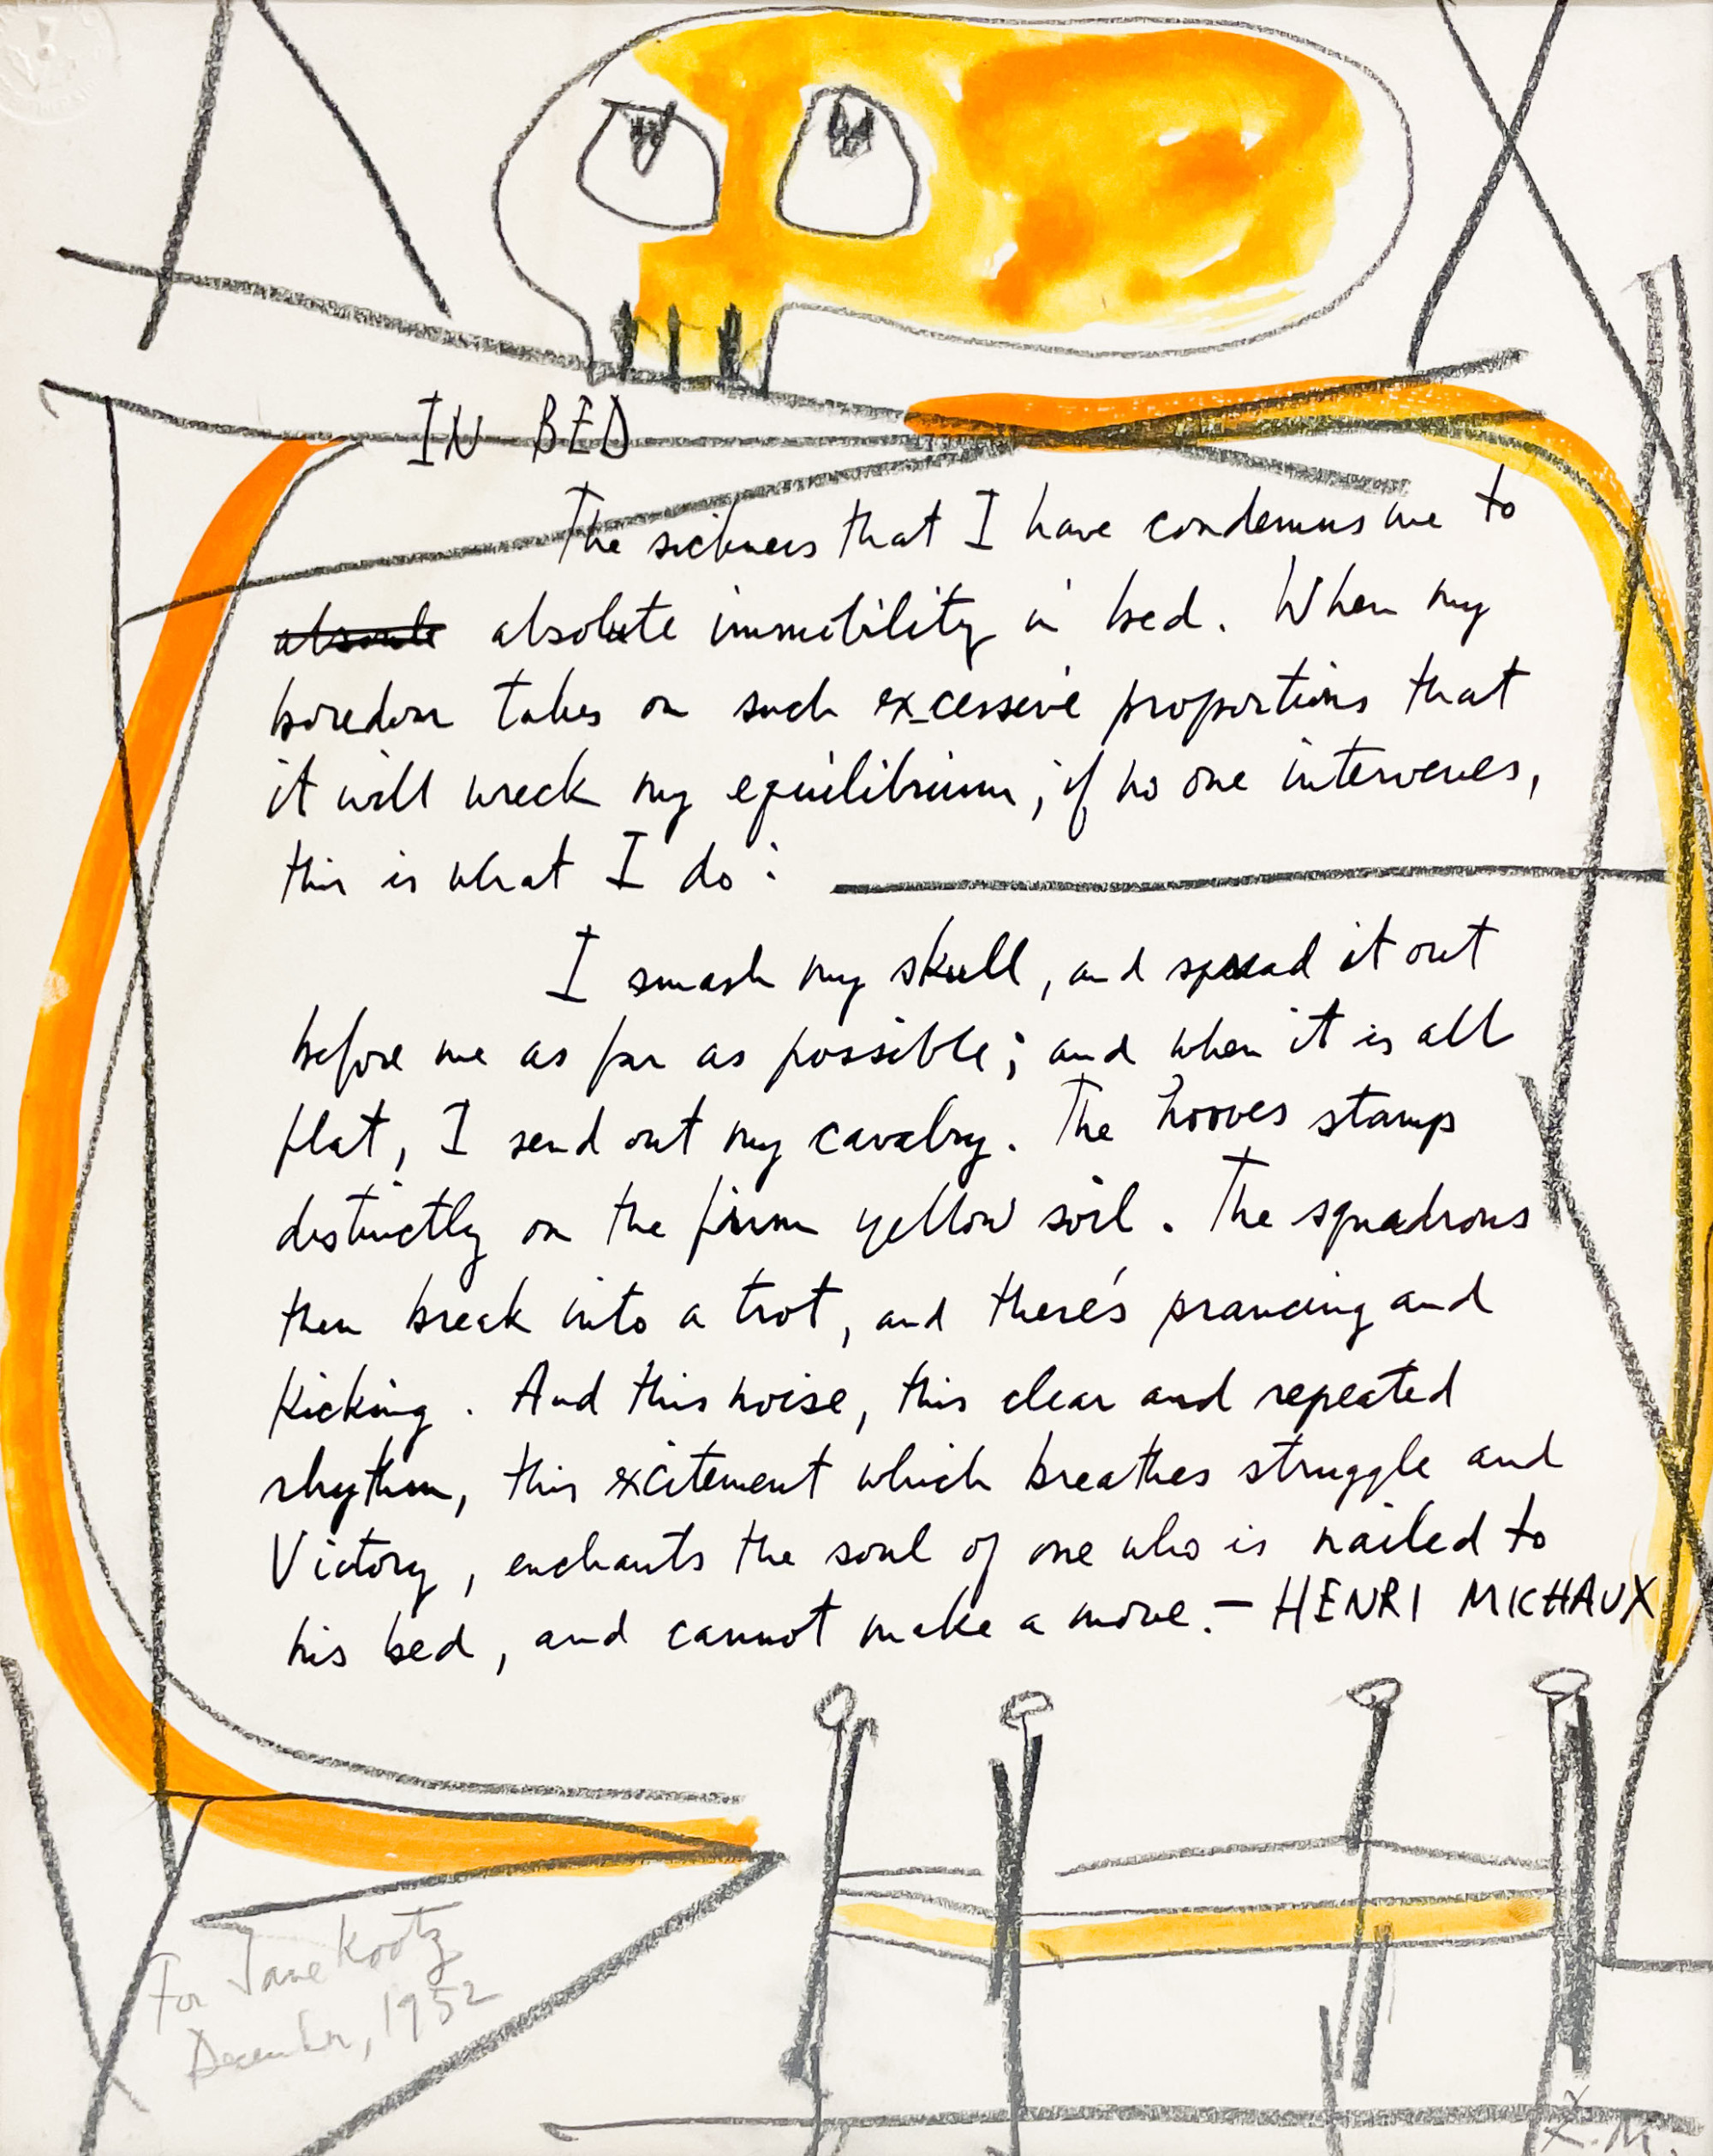 IN BED
The sickness that I have condemns me to
absoute absolute immobility in bed. When my
boredom takes on such excessive proportions that
it will wreck my equilibrium, if no one intervenes,
this is what I do:
I smash my skull, and spread it out
before me as far as possible; and when it is all
flat, I send out my cavalry. The hooves stamp
distinctly on the firm yellow soil. The squadrons
then break into a trot, and there's prancing and
Kicking. And this noise, this clear and repeated
rhythm, this excitement which breathes struggle and
Victory, enchants the soul of one who is nailed to
his bed, and cannot make a move. – HENRI MICHAUX
For Jane Kootz
December, 1952